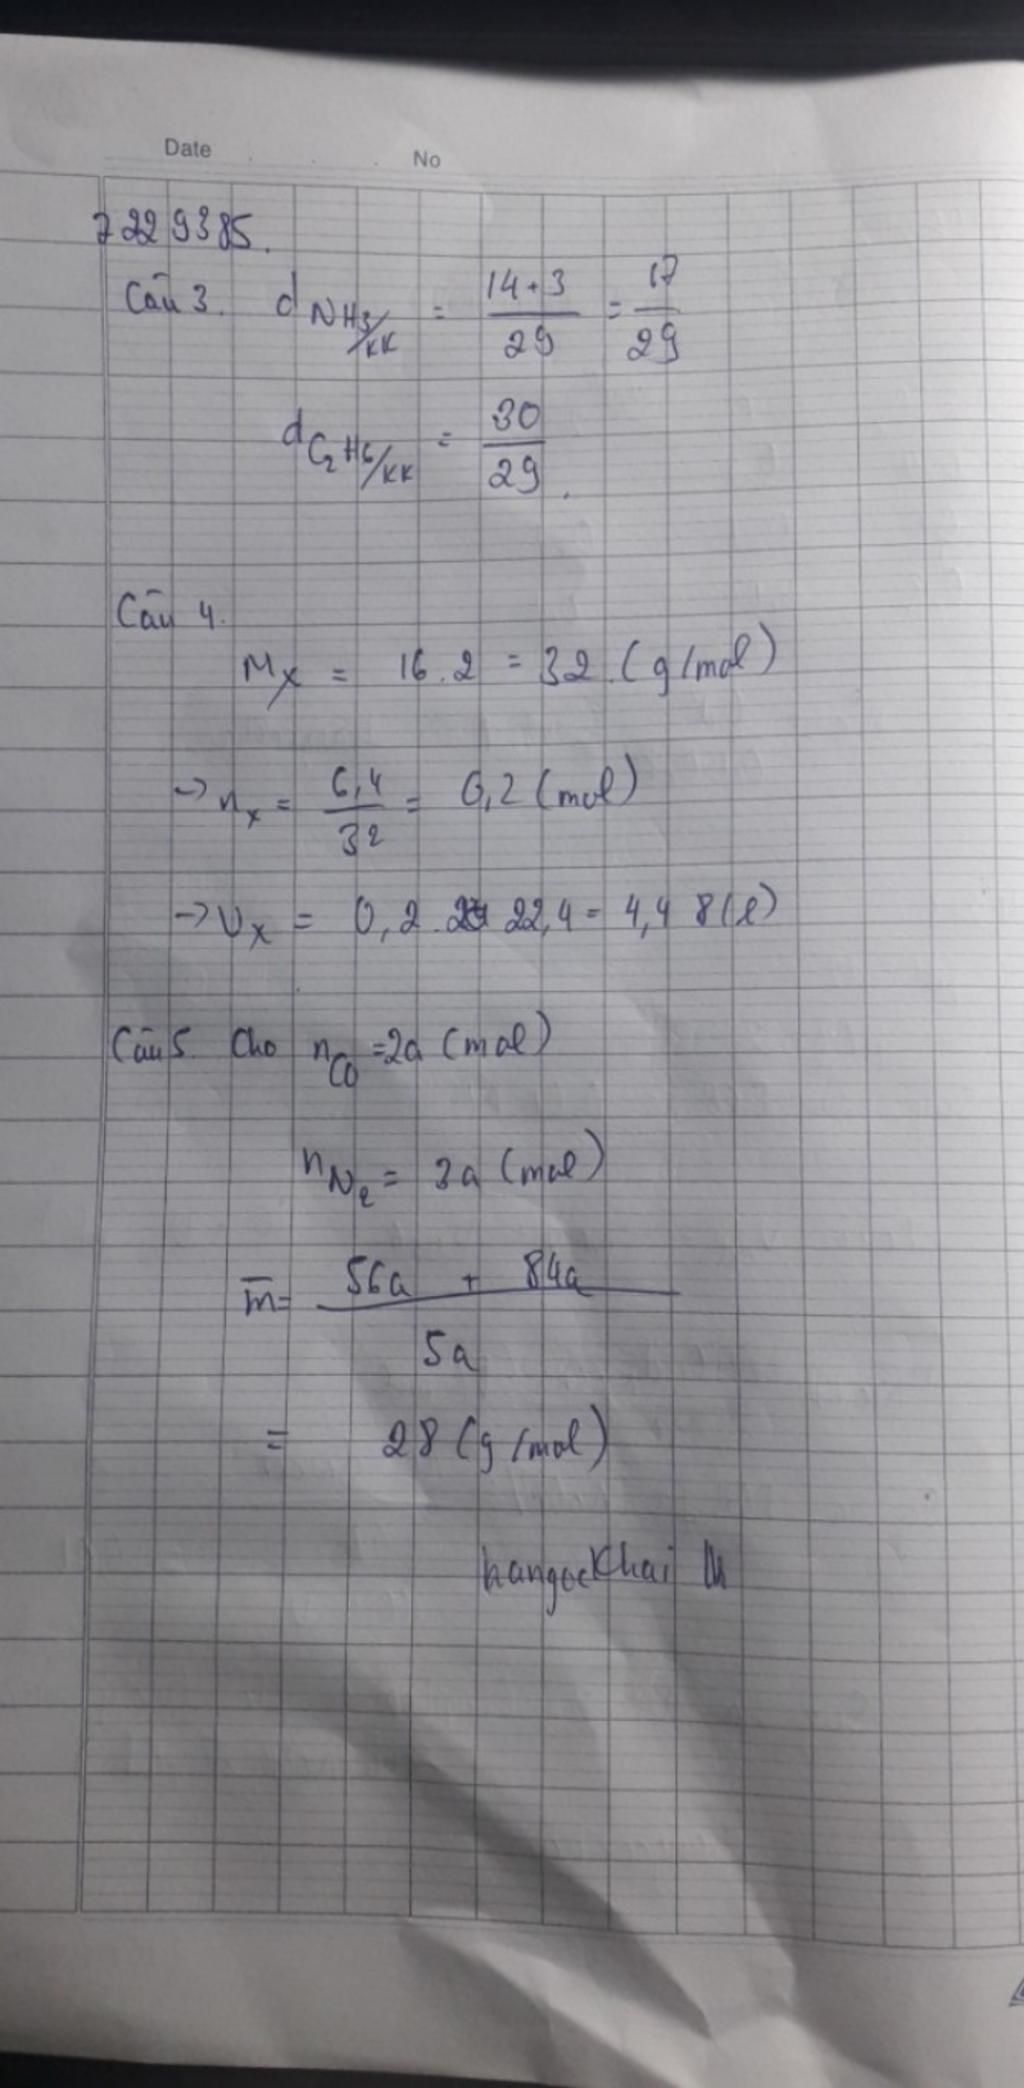 Date No
7229385.
Câu 3. d NH3/KK = 14+3/29 = 17/29
d C2H6/KK = 30/29.
Câu 4.
Mx = 16.2 = 32 (g/mol)
-> nx = 6,4/32 = 0,2 (mol)
-> Vx = 0,2. 22,4 = 4,48 (l)
Câu 5. Cho nCO = 2a (mol)
nN2 = 3a (mol)
m̅ = 56a + 84a/5a
= 28 (g/mol)
hangockhai